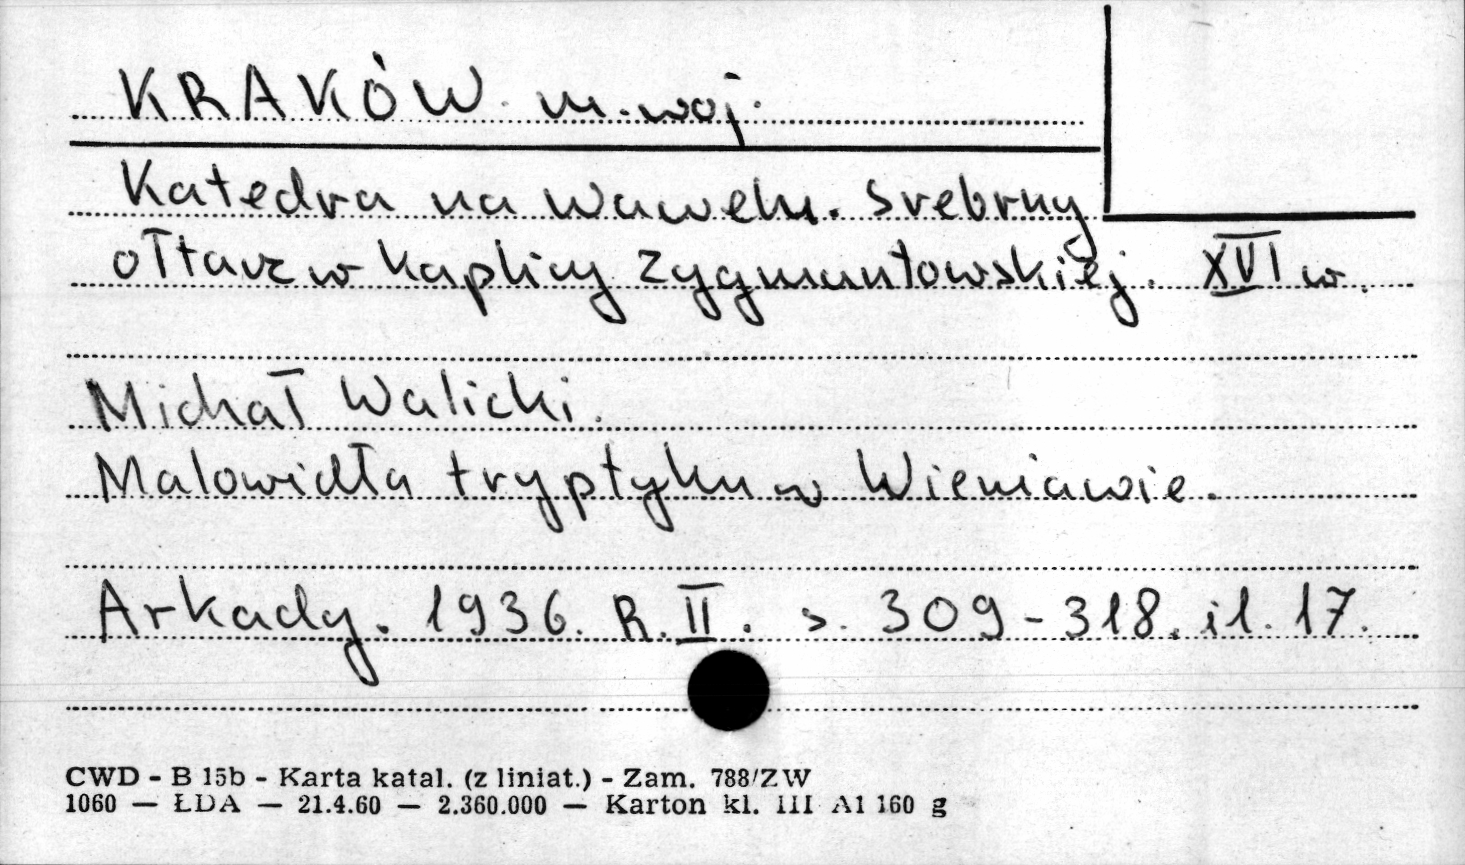 KRAKÓW m. woj.
Katedra na Wawelu. Srebrny
ołtarz w kaplicy Zygmuntowskiej. XVI w.
Michał Walicki.
Malowidła tryptyku w Wieniawie.
Arkady. 1936. R. II. s. 309-318, il. 17.
CWD - B 15b - Karta katal. (z liniat.) - Zam. 788/ZW
1060 — ŁDA — 21.4.60 — 2.360.000 — Karton kl. III A1 160 g